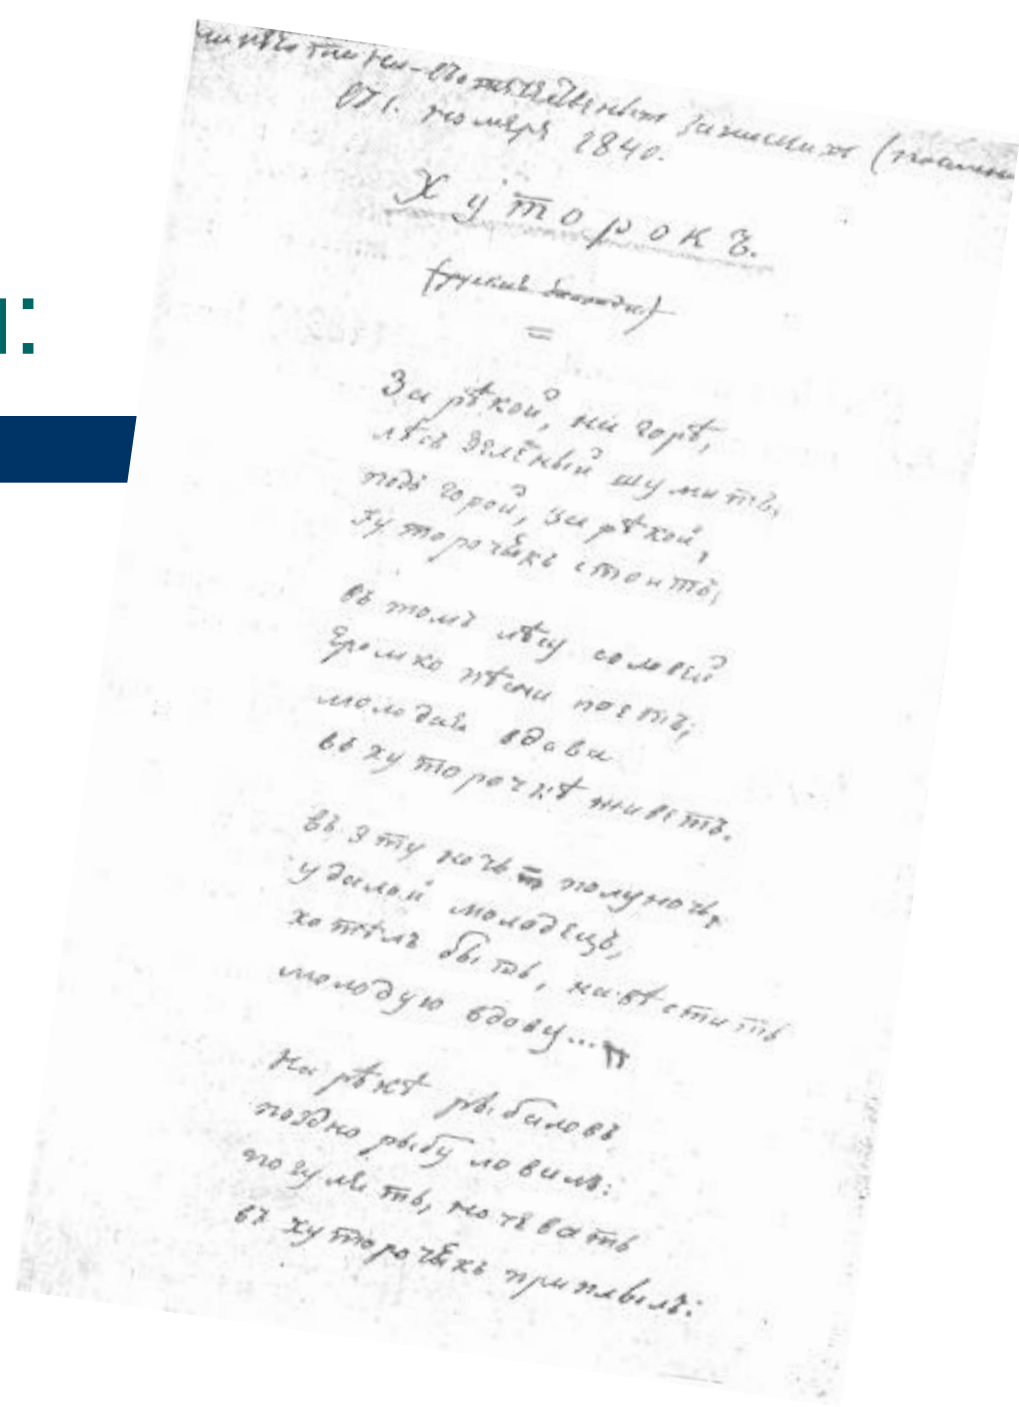 отечественныхъ запискахъ (
въ 1. номеръ 1840.
Хуторокъ.
(руская баллада)
За рѣкой, на горѣ,
лѣсъ зелёный шумитъ,
подъ горой, за рѣкой,
хуторочёкъ стоитъ,
въ томъ лѣсу соловей
громко пѣсни поетъ;
молодая вдова
въ хуторочкѣ живетъ.
въ эту ночь полуночь,
удалой молодецъ,
хотѣлъ быть, навѣстить
молодую вдову...
На рѣкѣ рыбаловъ
поздно рыбу ловилъ:
погулять, ночевать
въ хуторочёкъ приплылъ:
: